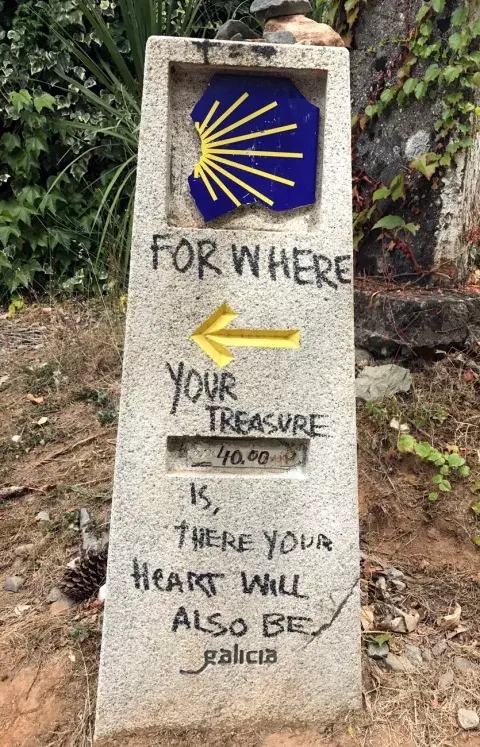 FOR WHERE
YOUR
TREASURE
40.00
IS,
THERE YOUR
HEART WILL
ALSO BE
galicia